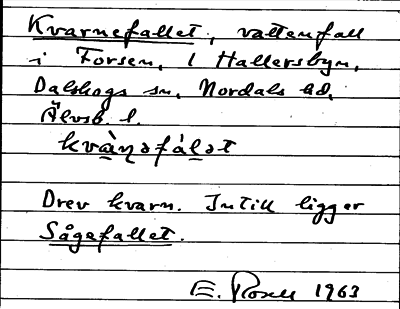 Kvarnefallet, vattenfall
i Forsen, l Hallersbyn,
Dalskogs sn, Nordals hd,
Älvsb. l.
kvàṇəfál̲ət
Drev kvarn. Intill ligger
Sågefallet.
E. Rosell 1963